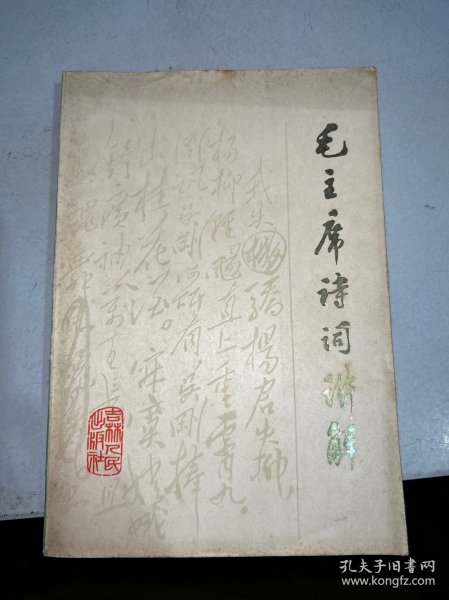 毛主席诗词讲解
我失驕楊君失柳,
楊柳輕颺直上重霄九。
问訊吴刚何所有 吴刚捧
出桂花酒。寂寞嫦娥
舒廣袖 万里長
吉林人民
出版社
孔夫子旧书网
www.kongfz.com